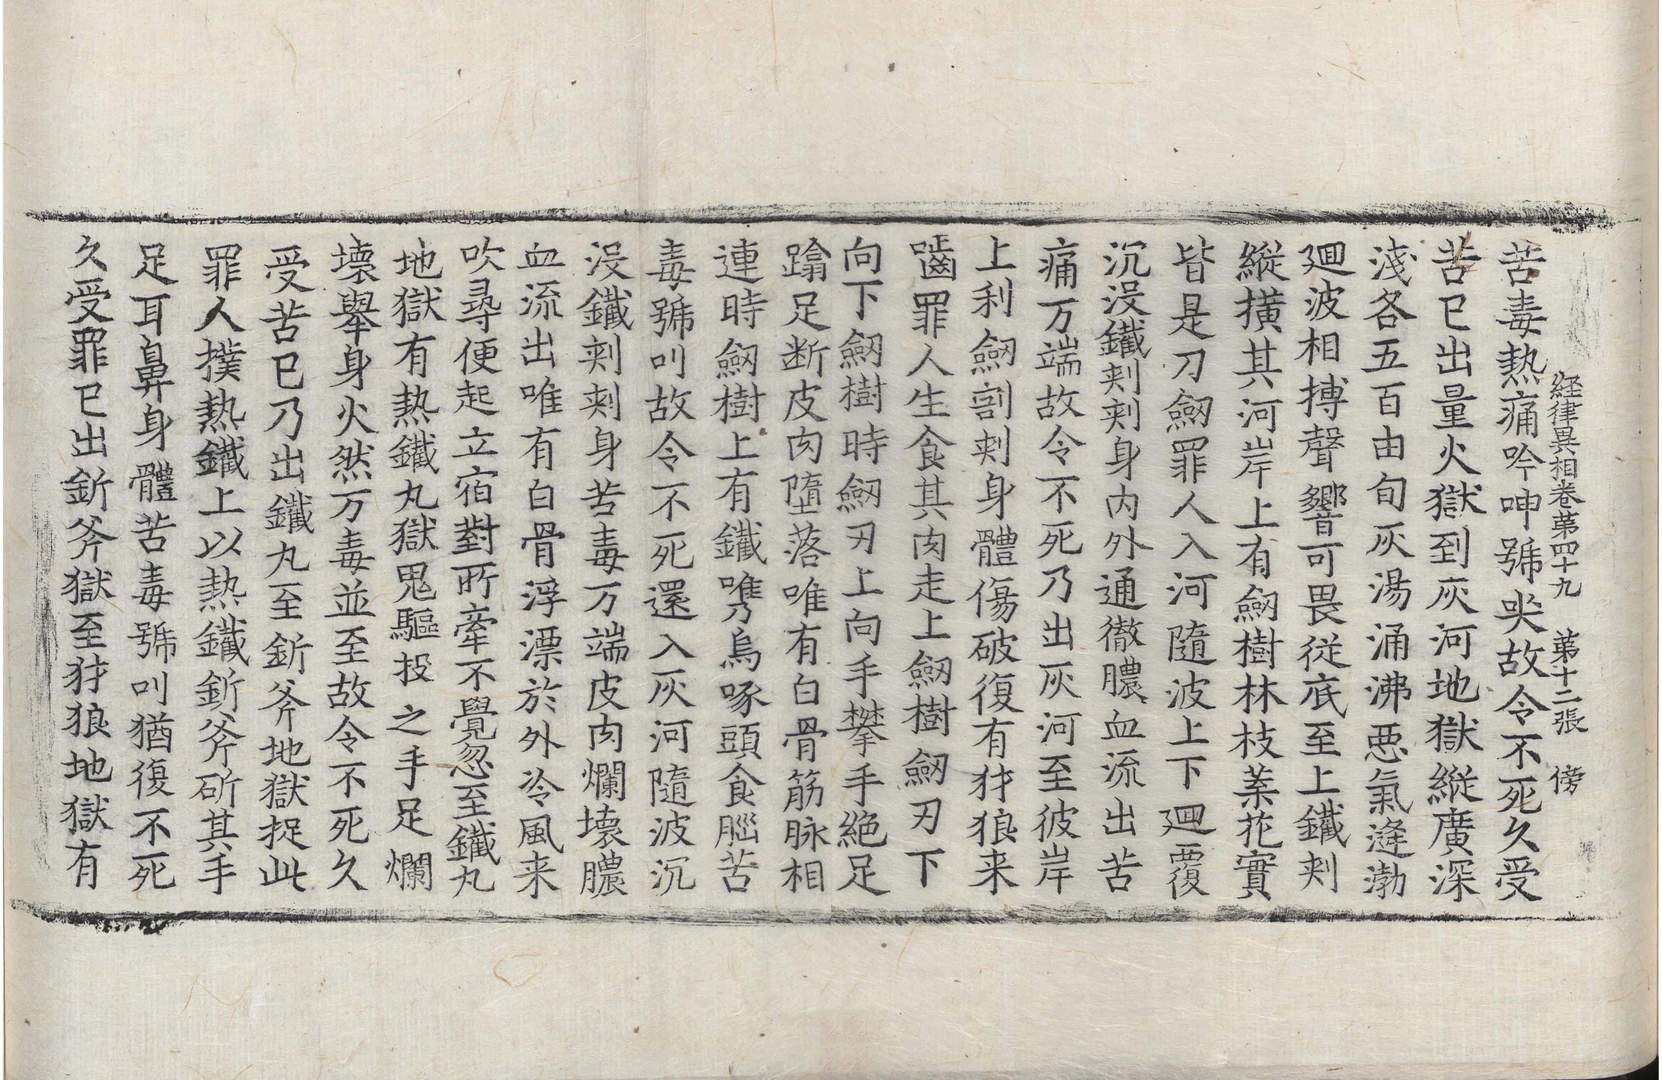 経律異相巻第四十九　第十二張　傍
苦毒熱痛吟呻號哭故令不死久受
苦已出量火獄到灰河地獄縱廣深
淺各五百由旬灰湯涌沸悪氣逢渤
廻波相搏聲響可畏従底至上鐵刾
縱橫其河岸上有劒樹林枝葉花實
皆是刀劒罪人入河隨波上下廻覆
沉没鐵刾刾身内外通徹膿血流出苦
痛万端故令不死乃出灰河至彼岸
上利劒割刾身體傷破復有犲狼来
嚙罪人生食其肉走上劒樹劒刃下
向下劒樹時劒刃上向手攀手絶足
踰足断皮肉墮落唯有白骨筋脉相
連時劒樹上有鐵㘘烏啄頭食腦苦
毒號叫故令不死還入灰河隨波沉
没鐵刾刾身苦毒万端皮肉爛壊膿
血流出唯有白骨浮漂於外冷風来
吹尋便起立宿對所牽不覺忽至鐵丸
地獄有熱鐵丸獄鬼驅投之手足爛
壊舉身火然万毒並至故令不死久
受苦已乃出鐵丸至釿斧地獄捉此
罪人撲熱鐵上以熱鐵釿斧斫其手
足耳鼻身體苦毒號叫猶復不死
久受罪已出釿斧獄至犲狼地獄有